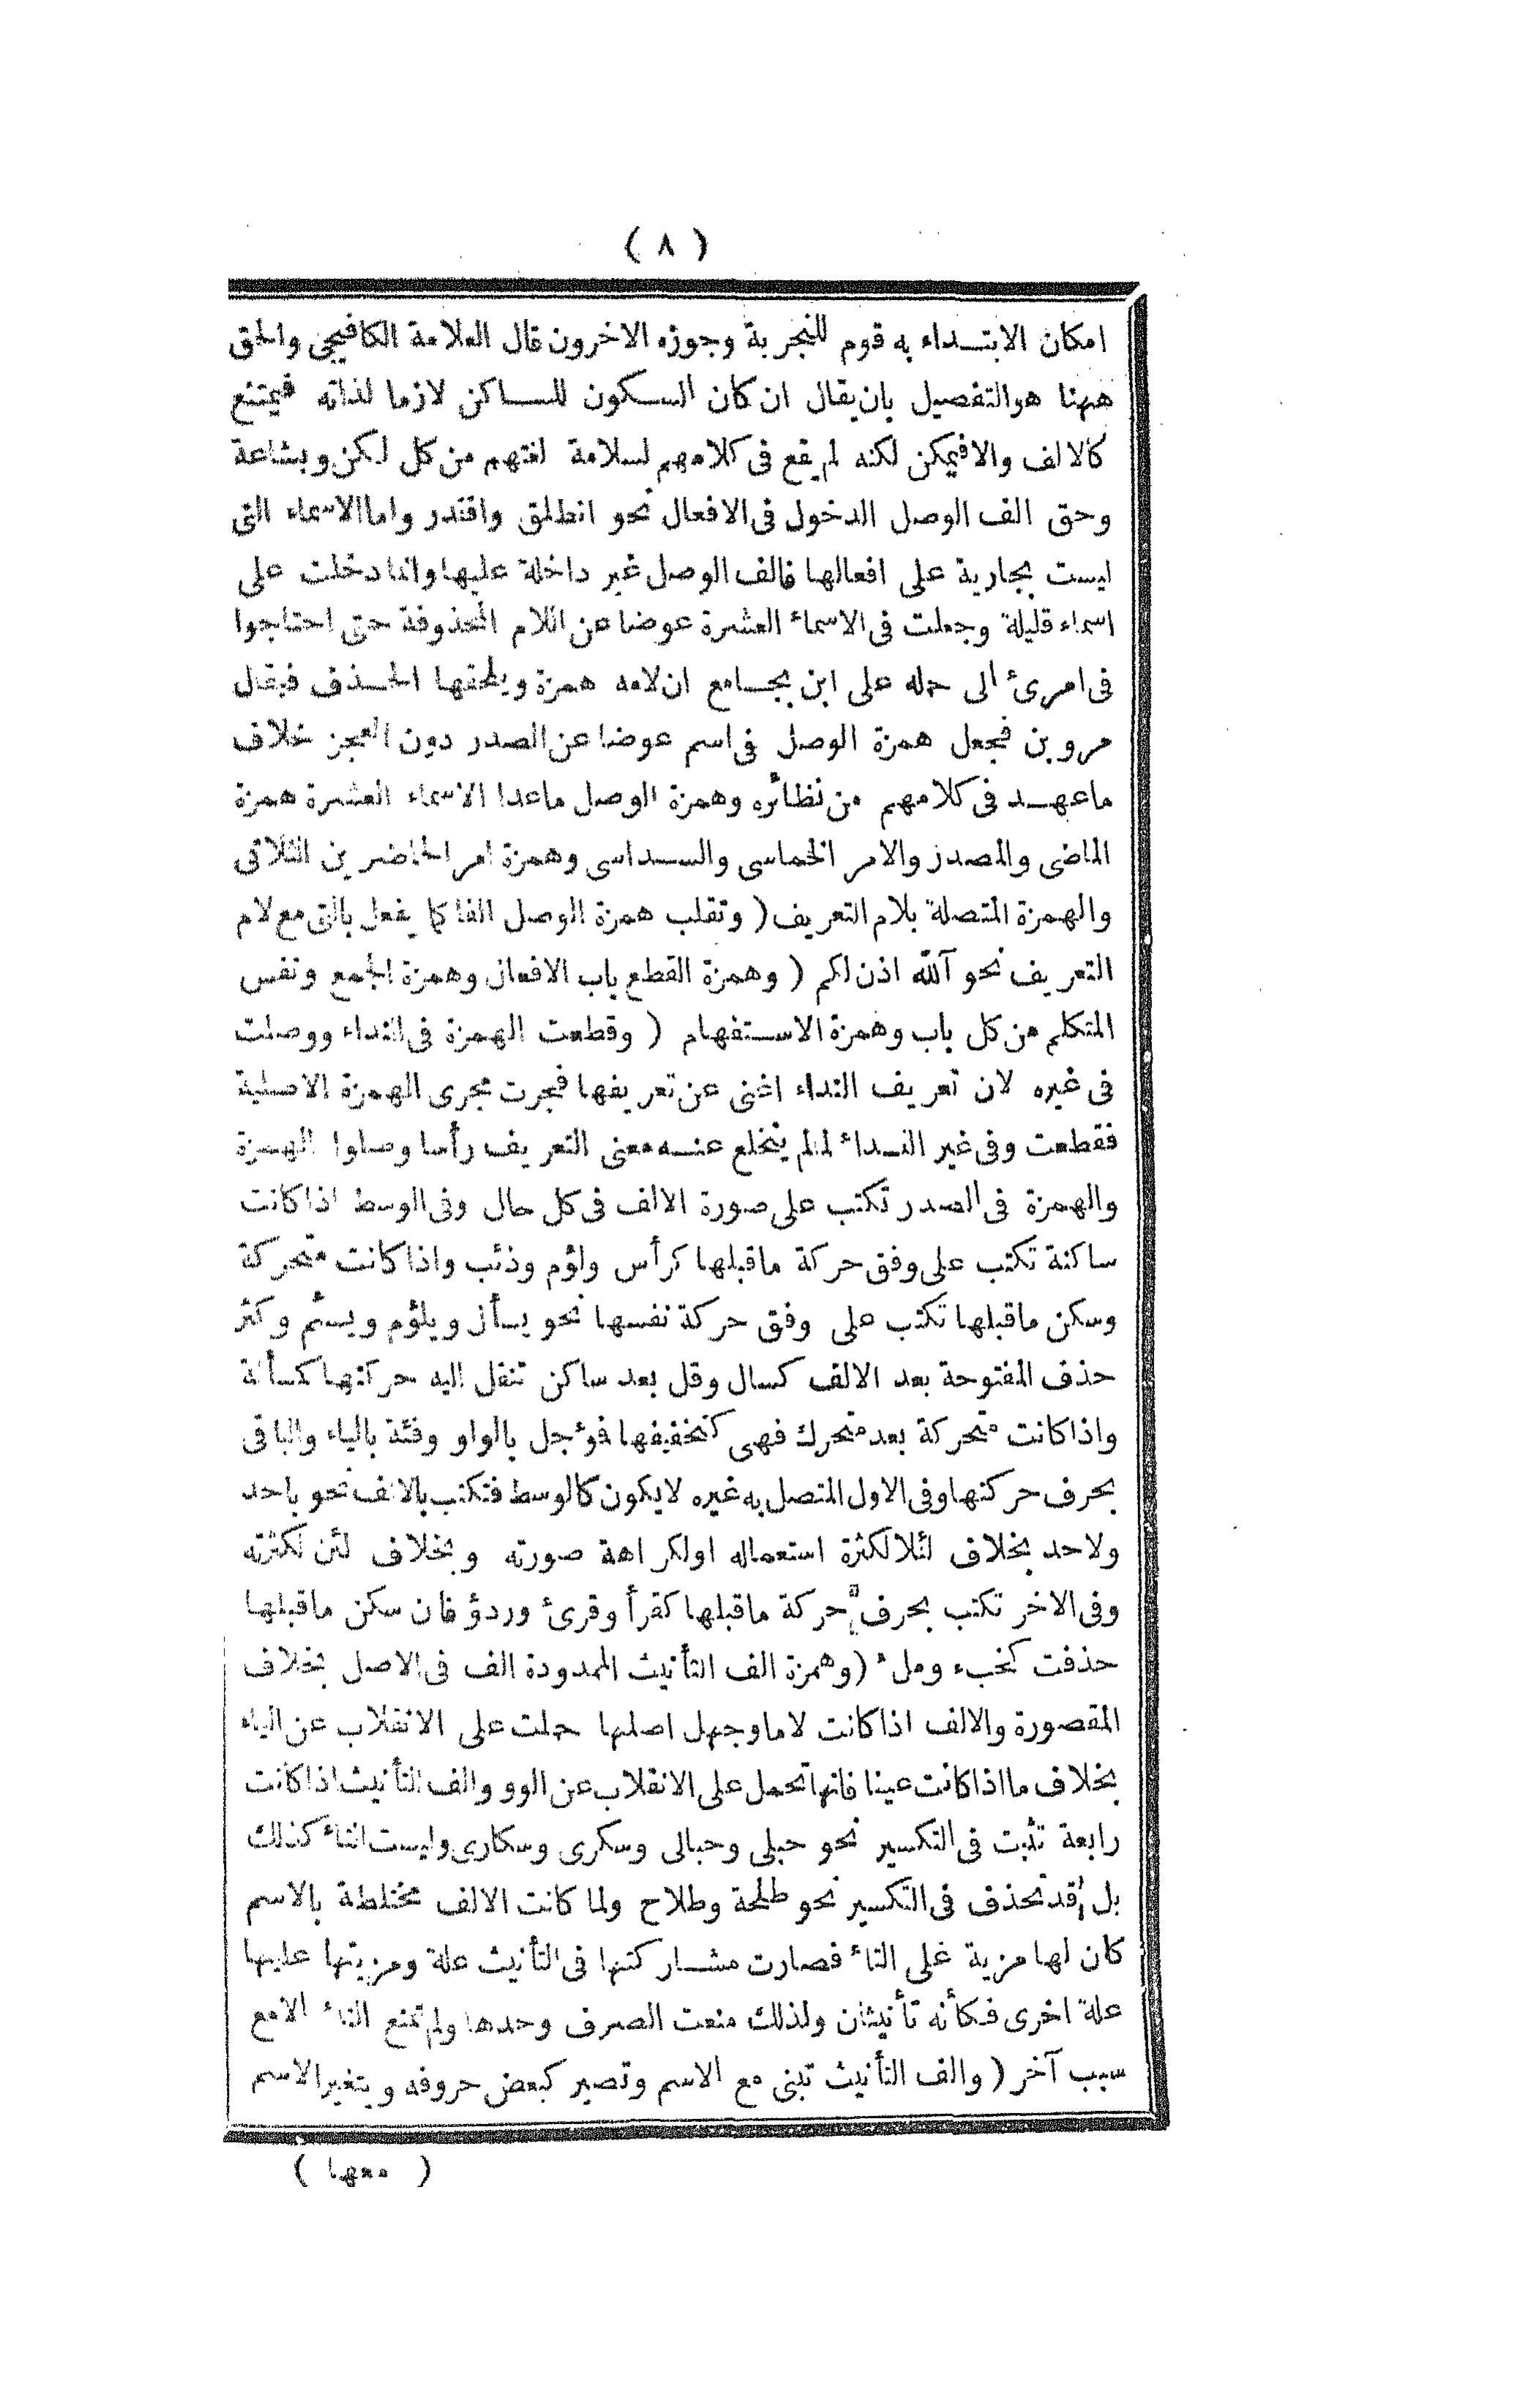 ( ٨ )
امكان الابتداء به قوم للتجربة وجوزه الاخرون قال العلامة الكافيجى والحق
ههنا هو التفصيل بان يقال ان كان السكون للساكن لازما لذاته فيمتنع
كالالف والا فيمكن لكنه لم يقع فى كلامهم لسلامة لغتهم من كل لكن وبشاعة
وحق الف الوصل الدخول فى الافعال نحو انطلق واقتدر واما الاسماء التى
ليست بجارية على افعالها فالف الوصل غير داخلة عليها وانما دخلت على
اسماء قليلة وجعلت فى الاسماء العشرة عوضا عن اللام المحذوفة حتى احتاجوا
فى امرئ الى حمله على ابن بجامع ان لامه همزة ويلحقها الحذف فيقال
مر وبن فجعل همزة الوصل فى اسم عوضا عن الصدر دون العجز خلاف
ما عهد فى كلامهم من نظائره وهمزة الوصل ماعدا الاسماء العشرة همزة
الماضى والمصدر والامر الخماسى والسداسى وهمزة امر الحاضر من الثلاثى
والهمزة المتصلة بلام التعريف ( وتقلب همزة الوصل الفا كما يفعل بالتى مع لام
التعريف نحو آلله اذن لكم ( وهمزة القطع باب الافعال وهمزة الجمع ونفس
المتكلم من كل باب وهمزة الاستفهام ( وقطعت الهمزة فى النداء ووصلت
فى غيره لان تعريف النداء اغنى عن تعريفها فجرت مجرى الهمزة الاصلية
فقطعت وفى غير النداء لما لم ينخلع عنه معنى التعريف رأسا وصلوا الهمزة
والهمزة فى الصدر تكتب على صورة الالف فى كل حال وفى الوسط اذا كانت
ساكنة تكتب على وفق حركة ماقبلها كرأس ولؤم وذئب واذا كانت متحركة
وسكن ماقبلها تكتب على وفق حركة نفسها نحو يسأل ويلؤم ويسئم وكثر
حذف المفتوحة بعد الالف كسال وقل بعد ساكن تنقل اليه حركتها كمسألة
واذا كانت متحركة بعد متحرك فهى كتخفيفها فوءجل بالواو وفئة بالياء والباقى
بحرف حركتها وفى الاول المتصل به غيره لا يكون كالوسط فتكتب بالالف نحو باحد
ولاحد بخلاف لئلا لكثرة استعماله او لكراهة صورته وبخلاف لئن لكثرته
وفى الاخر تكتب بحرف حركة ماقبلها كقرأ وقرئ وردؤ فان سكن ماقبلها
حذفت كخبء وملء ( وهمزة الف التأنيث الممدودة الف فى الاصل بخلاف
المقصورة والالف اذا كانت لاما وجهل اصلها حملت على الانقلاب عن الياء
بخلاف ما اذا كانت عينا فانها تحمل على الانقلاب عن الوو والف التأنيث اذا كانت
رابعة تثبت فى التكسير نحو حبلى وحبالى وسكرى وسكارى وليست التاء كذلك
بل قد تحذف فى التكسير نحو طلحة وطلاح ولما كانت الالف مختلطة بالاسم
كان لها مزية على التاء فصارت مشاركتها فى التأنيث علة ومزيتها عليها
علة اخرى فكأنه تأنيثان ولذلك منعت الصرف وحدها ولم تمنع التاء الا مع
سبب آخر ( والف التأنيث تبنى مع الاسم وتصير كبعض حروفه ويتغير الاسم
( معها )